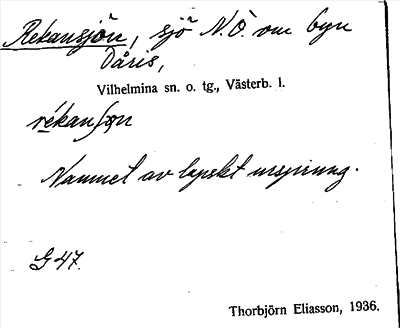 Rekansjön, sjö N.Ö. om byn
Dåris,
Vilhelmina sn. o. tg., Västerb. l.
Namnet av lapskt ursprung.
G 47.
Thorbjörn Eliasson, 1936.